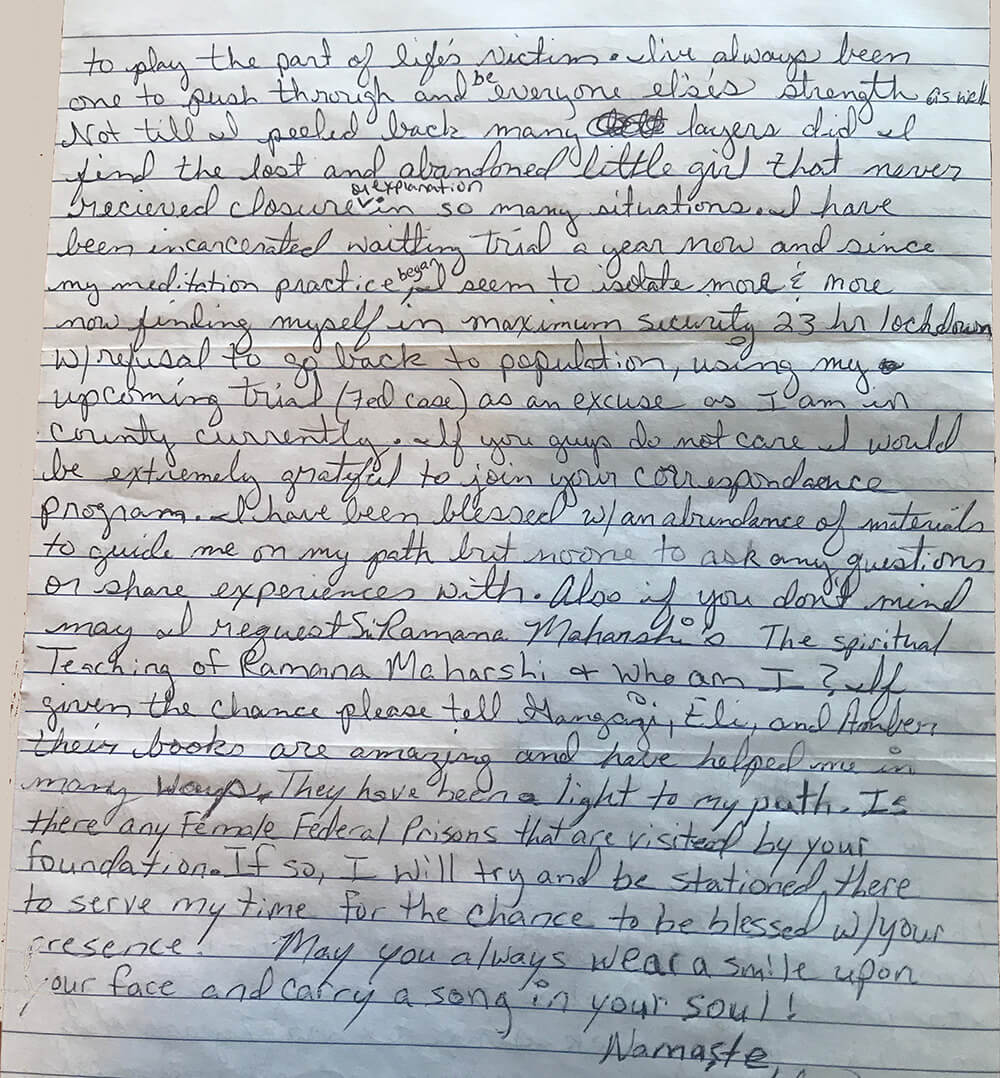 to play the part of life's victim. I've always been
one to push through and be everyone else's strength as well
Not till I peeled back many layers did I
find the lost and abandoned little girl that never
recieved closure or explanation in so many situations. I have
been incarcerated waitting trial a year now and since
my meditation practice began I seem to isolate more & more
now finding myself in maximum security 23 hr lockdown
w/refusal to go back to population, using my
upcoming trial (Fed case) as an excuse as I am in
county currently. If you guys do not care I would
be extremely grateful to join your correspondaence
program. I have been blessed w/an abundance of materials
to guide me on my path but noone to ask any question
or share experiences with. Also if you don't mind
may I request Sri Ramana Maharshi's The spiritual
Teaching of Ramana Maharshi & Who am I? If
given the chance please tell Gangaji, Eli, and Amber
their books are amazing and have helped me in
many ways. They have been a light to my path. Is
there any Female Federal Prisons that are visited by your
foundation. If so, I will try and be stationed there
to serve my time for the chance to be blessed w/your
presence! May you always wear a smile upon
your face and carry a song in your soul!
Namaste,